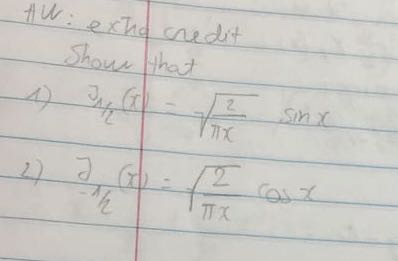 HW: extra credit
Show that
1) J_{1/2}(x) = √(2/πx) sin x
2) J_{-1/2}(x) = √(2/πx) cos x